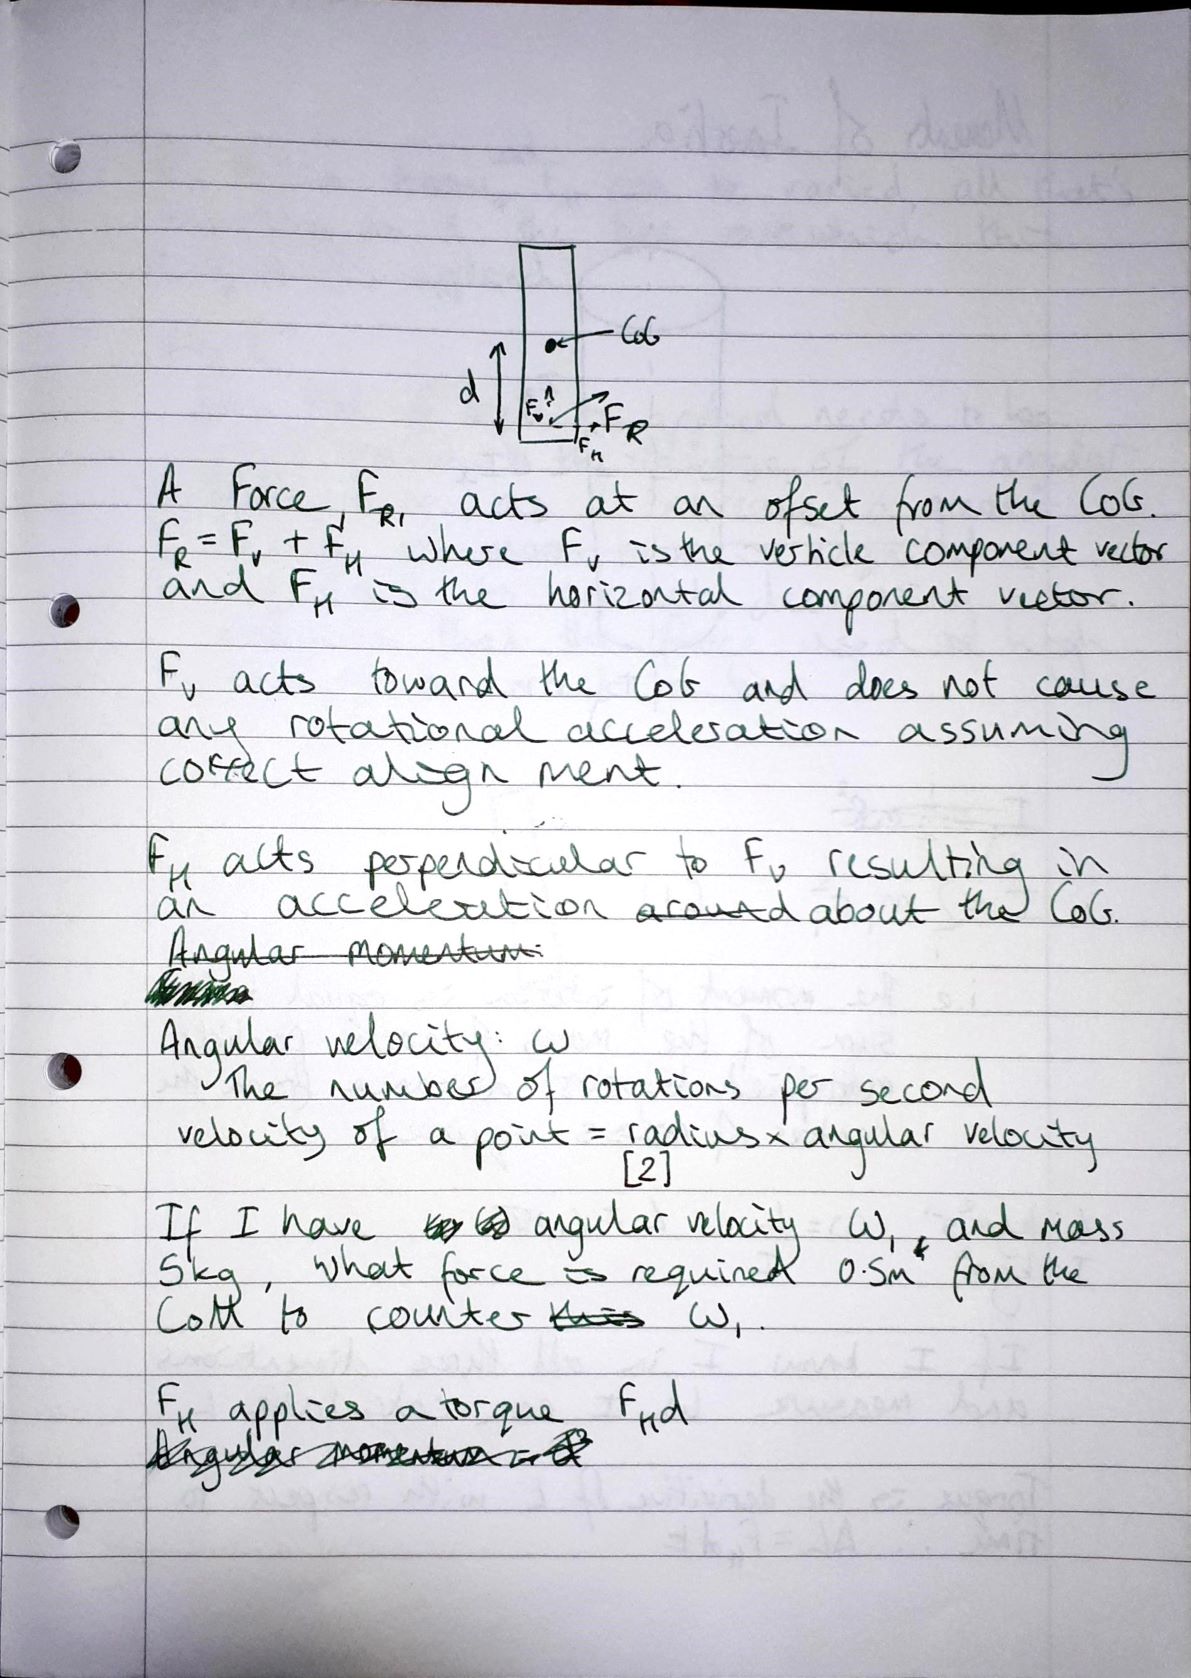 CoG
d
Fv
FR
FH
A Force, FR, acts at an ofset from the CoG.
FR = Fv + FH where Fv is the verticle component vector
and FH is the horizontal component vector.
Fv acts toward the CoG and does not cause
any rotational acceleration assuming
correct alignment.
FH acts perpendicular to Fv resulting in
an acceleration around about the CoG.
Angular momentum:
Angular velocity: ω
The number of rotations per second
velocity of a point = radius x angular velocity
[2]
If I have angular velocity ω1, and mass
5kg, what force is required 0.5m from the
CoM to counter this ω1.
FH applies a torque FHd
Angular momentum =